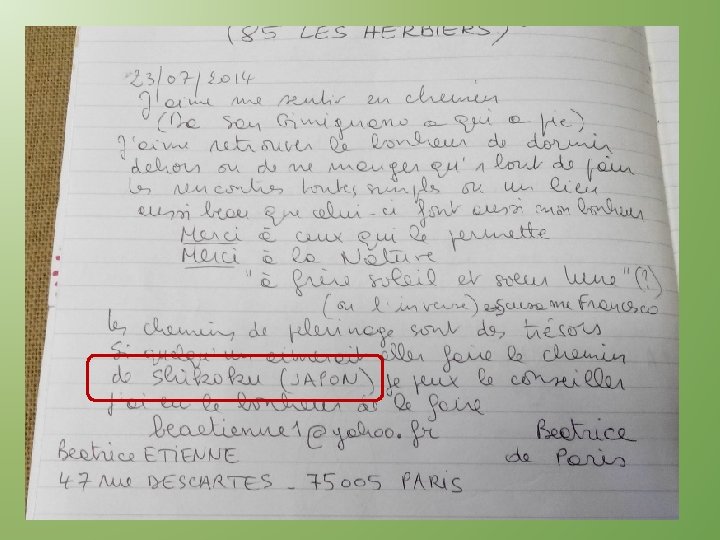 (85 LES HERBIERS)
23/07/2014
J'aime me sentir en chemin
(Da San Gimignano a qui a pie)
J'aime retrouver le bonheur de dormir
dehors ou de ne manger qu'1 bout de pain
les rencontres toutes simples ou un lieu
aussi beau que celui-ci font aussi mon bonheur
Merci à ceux qui le permette
Merci à la Nature
"à frère soleil et soeur lune" (?)
(ou l'inverse) scusa me Francesco
les chemins de pelerinage sont des trésors
Si quelqu'un aimerait aller faire le chemin
de Shikoku (JAPON) je peux le conseiller
j'ai eu le bonheur de le faire
beaetienne1@yahoo.fr Beatrice
Beatrice ETIENNE de Paris
47 rue DESCARTES - 75005 PARIS